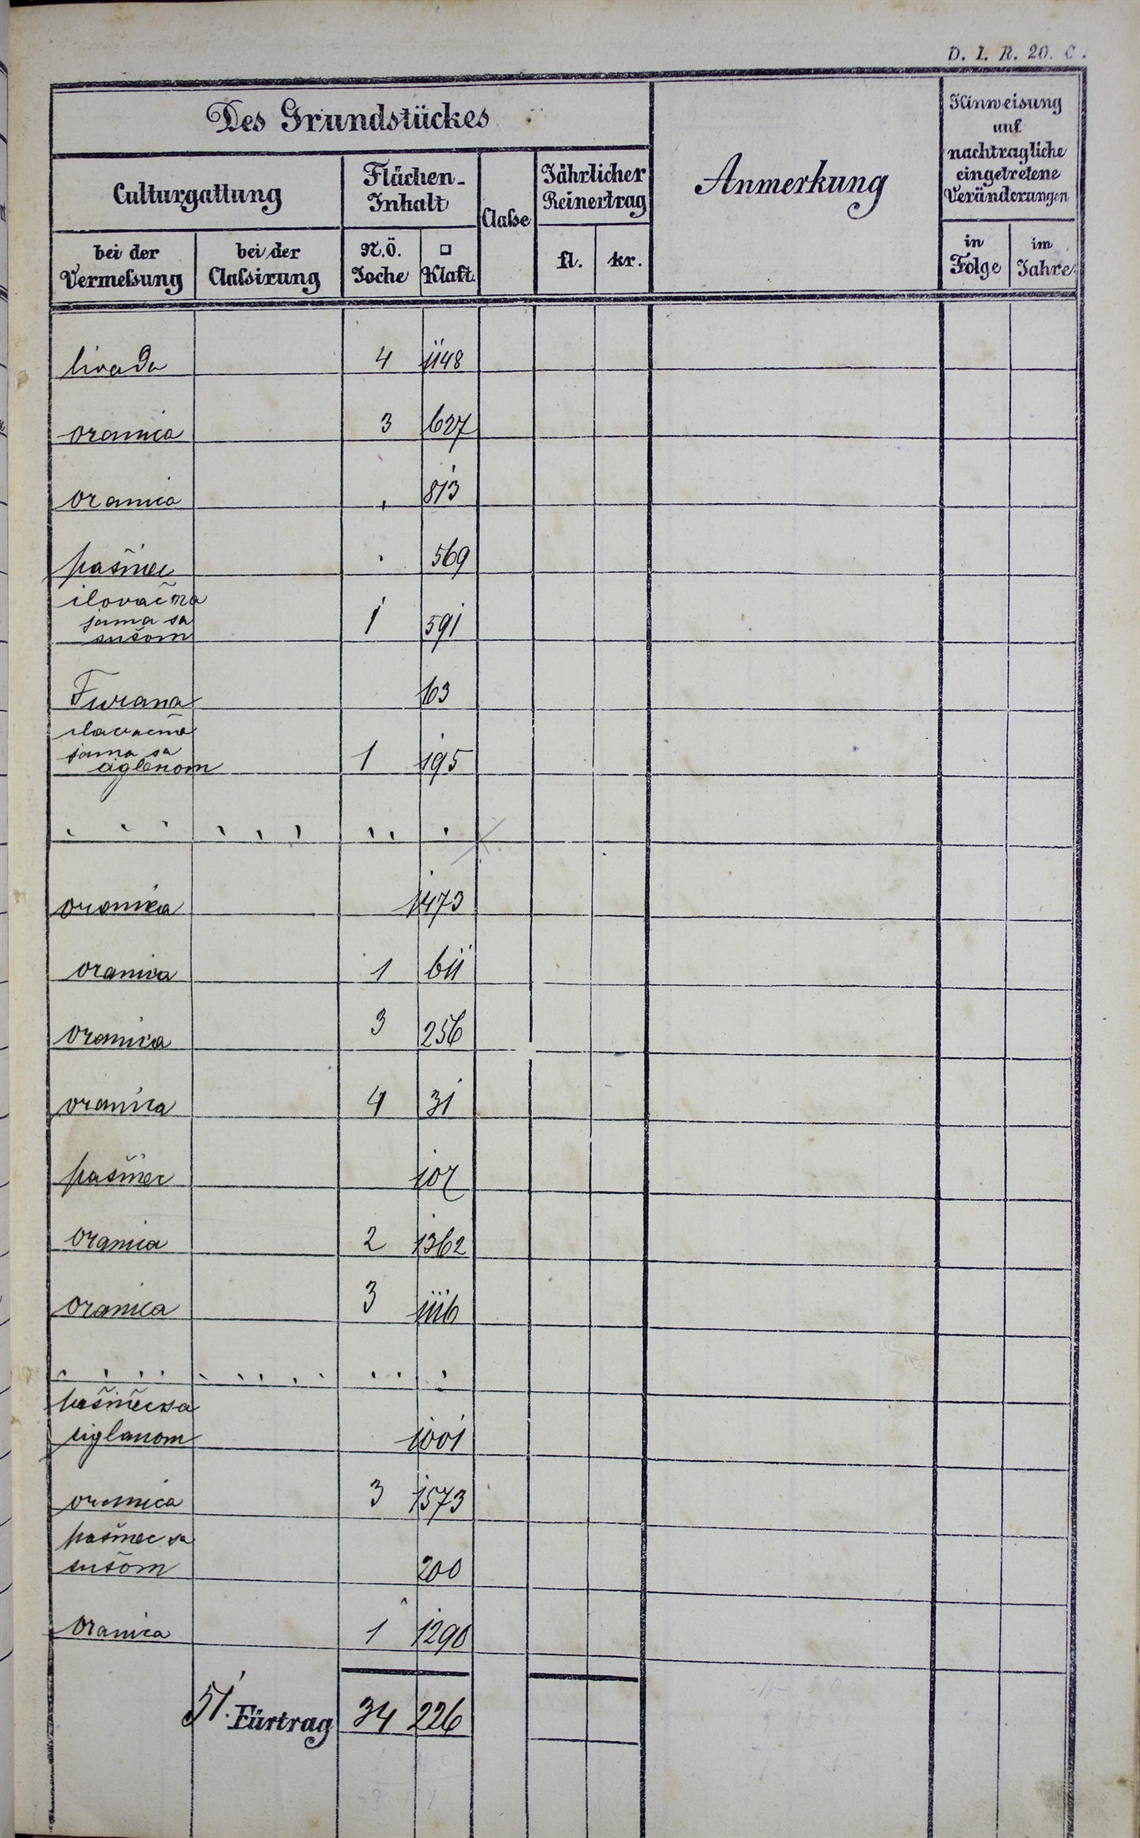 D. I. R. 20. C.
Des Grundstückes
Anmerkung
Hinweisung
auf
nachtragliche
eingetretene
Veränderungen
Culturgattung
Flächen-
Inhalt
Classe
Jährlicher
Reinertrag
bei der
Vermeßung
bei der
Claßirung
N.Ö.
Joche
□
Klaft.
fl.
kr.
in
Folge
im
Jahre
livada 4 1148
oranica 3 627
oranica . 813
pašnec . 569
ilovačna
jama sa
sušom 1 591
Furana 63
ilovačna
jama sa
ciglenom 1 195
oranica 1473
oranica 1 611
oranica 3 256
oranica 4 31
pašnec 107
oranica 2 1362
oranica 3 1116
ciglanom 1001
oranica 3 1573
pašnec sa
sušom 200
oranica 1 1290
51. Fürtrag 34 226